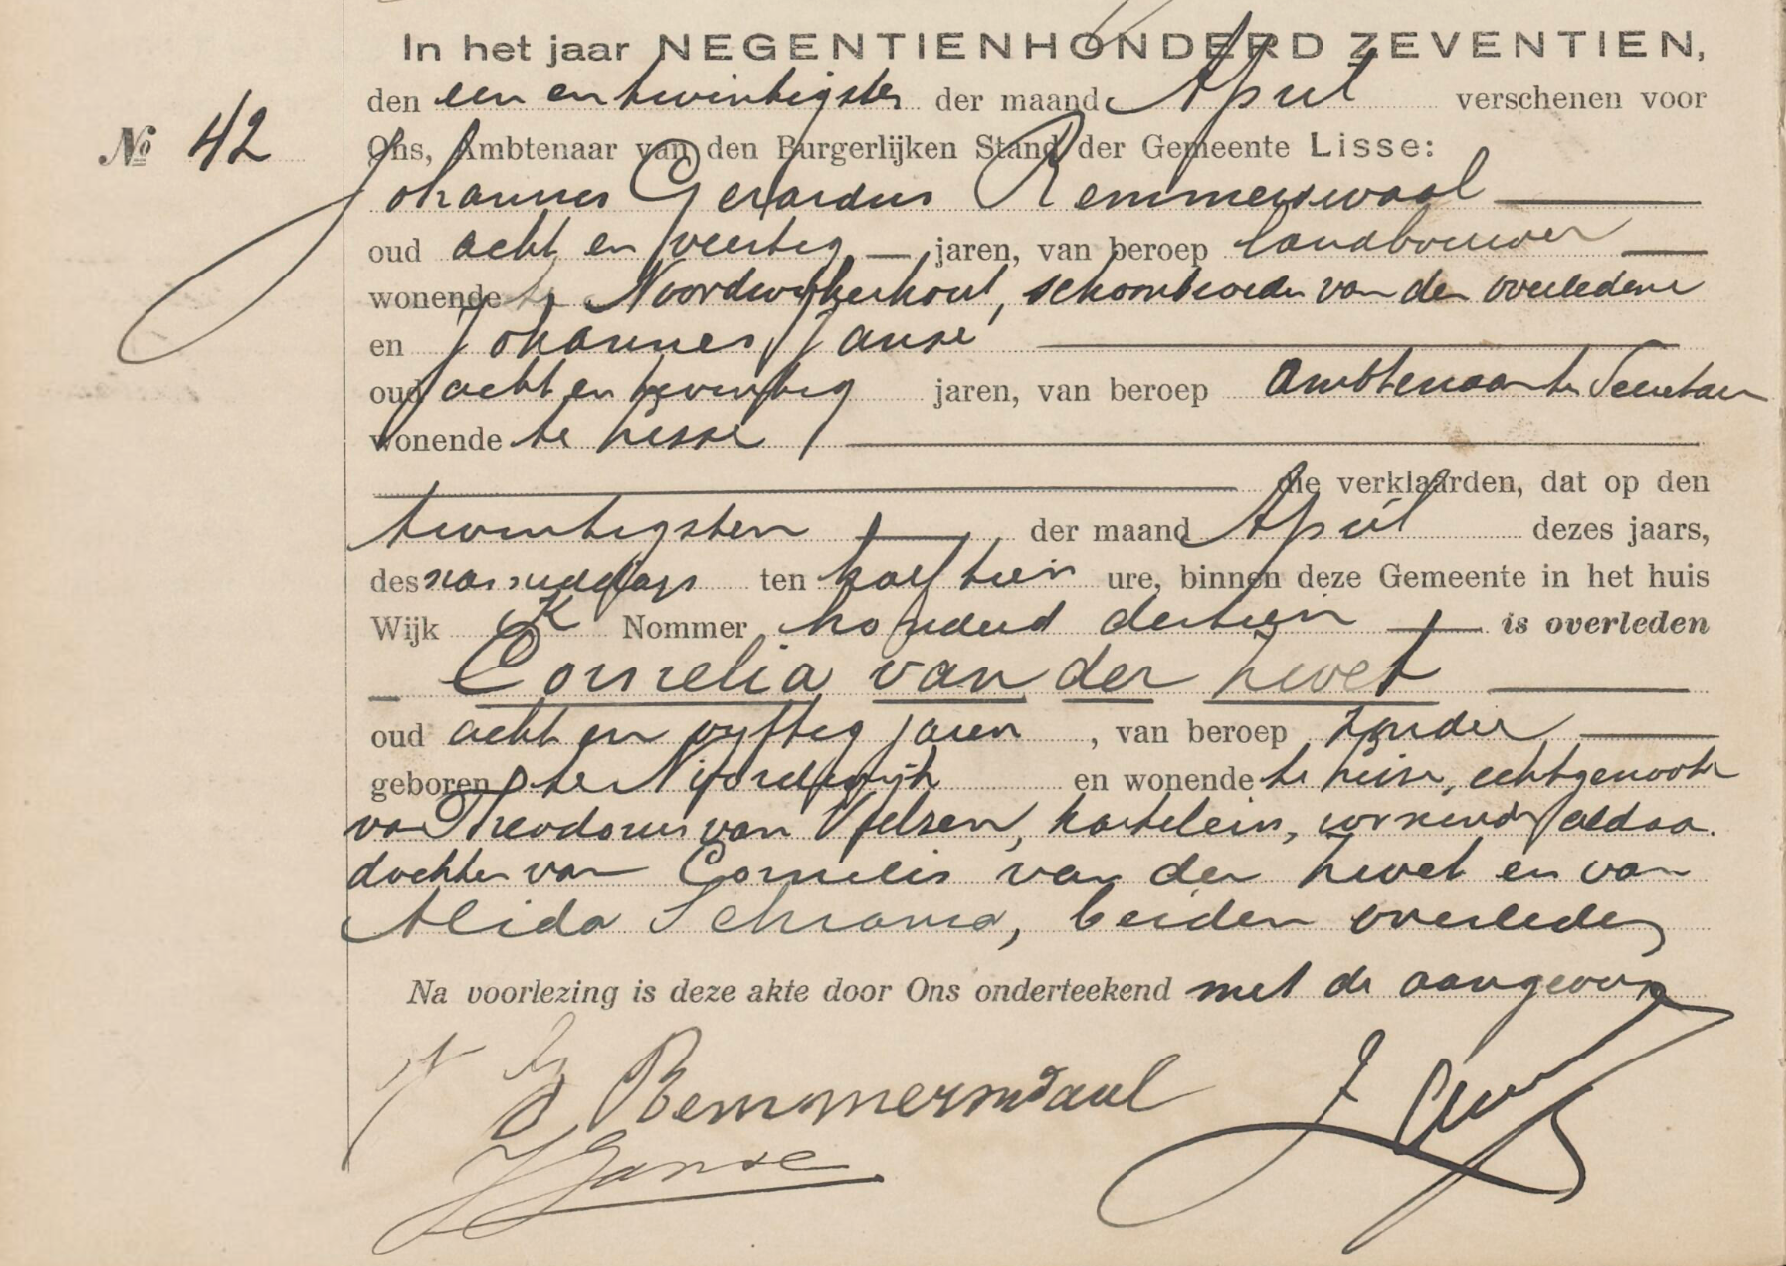 In het jaar NEGENTIENHONDERD ZEVENTIEN,
den een en twintigsten der maand April verschenen voor
No 42
Ons, Ambtenaar van den Burgerlijken Stand der Gemeente Lisse:
Johannes Gerardus Remmerswaal
oud acht en veertig jaren, van beroep landbouwer
wonende te Noordwijkerhout, schoonbroeder van de overledene
en Johannes Janse
oud acht en twintig jaren, van beroep Ambtenaar ter Secretarie
wonende te Lisse
die verklaarden, dat op den
twintigsten der maand April dezes jaars,
des namiddags ten half tien ure, binnen deze Gemeente in het huis
Wijk K Nommer honderd dertien is overleden
Cornelia van der Zwet
oud acht en vyftig jaren, van beroep zonder
geboren te Noordwijk en wonende te Lisse, echtgenoote
van Theodorus van Velsen, kastelein, wonende aldaar.
dochter van Cornelis van der Zwet en van
Alida Schrama, beiden overleden
Na voorlezing is deze akte door Ons onderteekend met de aangevers
Remmerswaal
J Janse